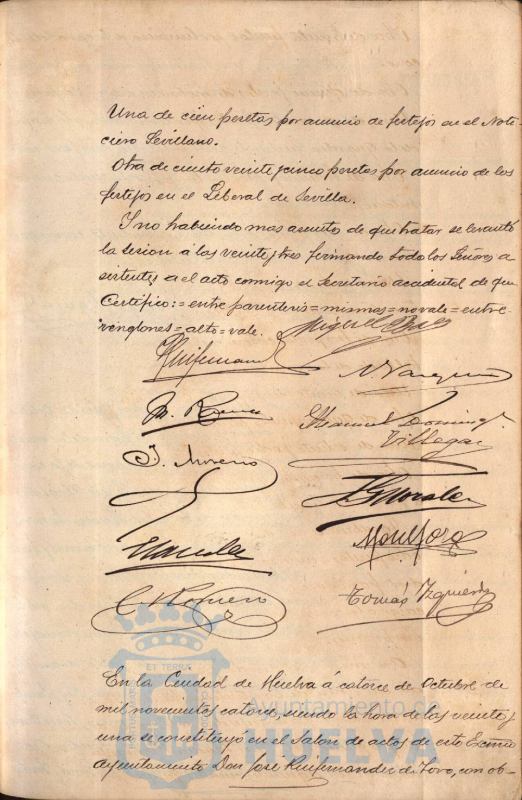 Una de cien pesetas por anuncio de festejos en el Noti-
ciero Sevillano.
Otra de ciento veinte y cinco pesetas por anuncio de los
festejos en el Liberal de Sevilla.
Y no habiendo mas asuntos de que tratar se levantó
la sesion á las veinte y tres firmando todo los Señores a
sistentes a el acto conmigo el Secretario accidental de que
Certifico: = entre parentesis = mismas = no vale = entre-
renglones = alto = vale.
M. 
J. Moreno
Manuel Doming
Villegas
Tomás Izquierdo
ET TERRÆ
Ayuntamiento de
HUELVA
En la Ciudad de Huelva á catorce de Octubre de
mil novecientos catorce, siendo la hora de las veinte y
una se constituyó en el Salon de actos de este Excmo
Ayuntamiento Don José Ruifernandez de Toro, con ob-